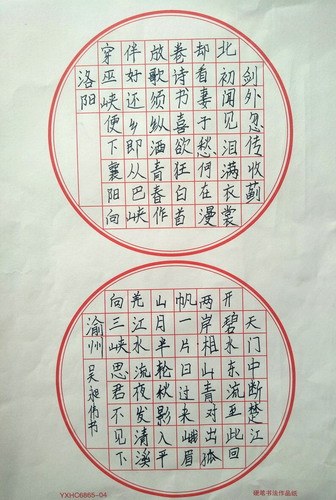 剑外忽传收蓟
北初闻见泪满衣裳
却看妻子愁何在漫
卷诗书喜欲狂白首
放歌须纵酒青春作
伴好还乡即从巴峡
穿巫峡便下襄阳向
洛阳
天门中断楚江
开碧水东流至此回
两岸相山青对出孤
帆一片日过来峨眉
山月半轮秋影入平
羌江水流夜发清溪
向三峡思君不见下
渝州 吴昶伟书
YXHC6865-04
硬笔书法作品纸